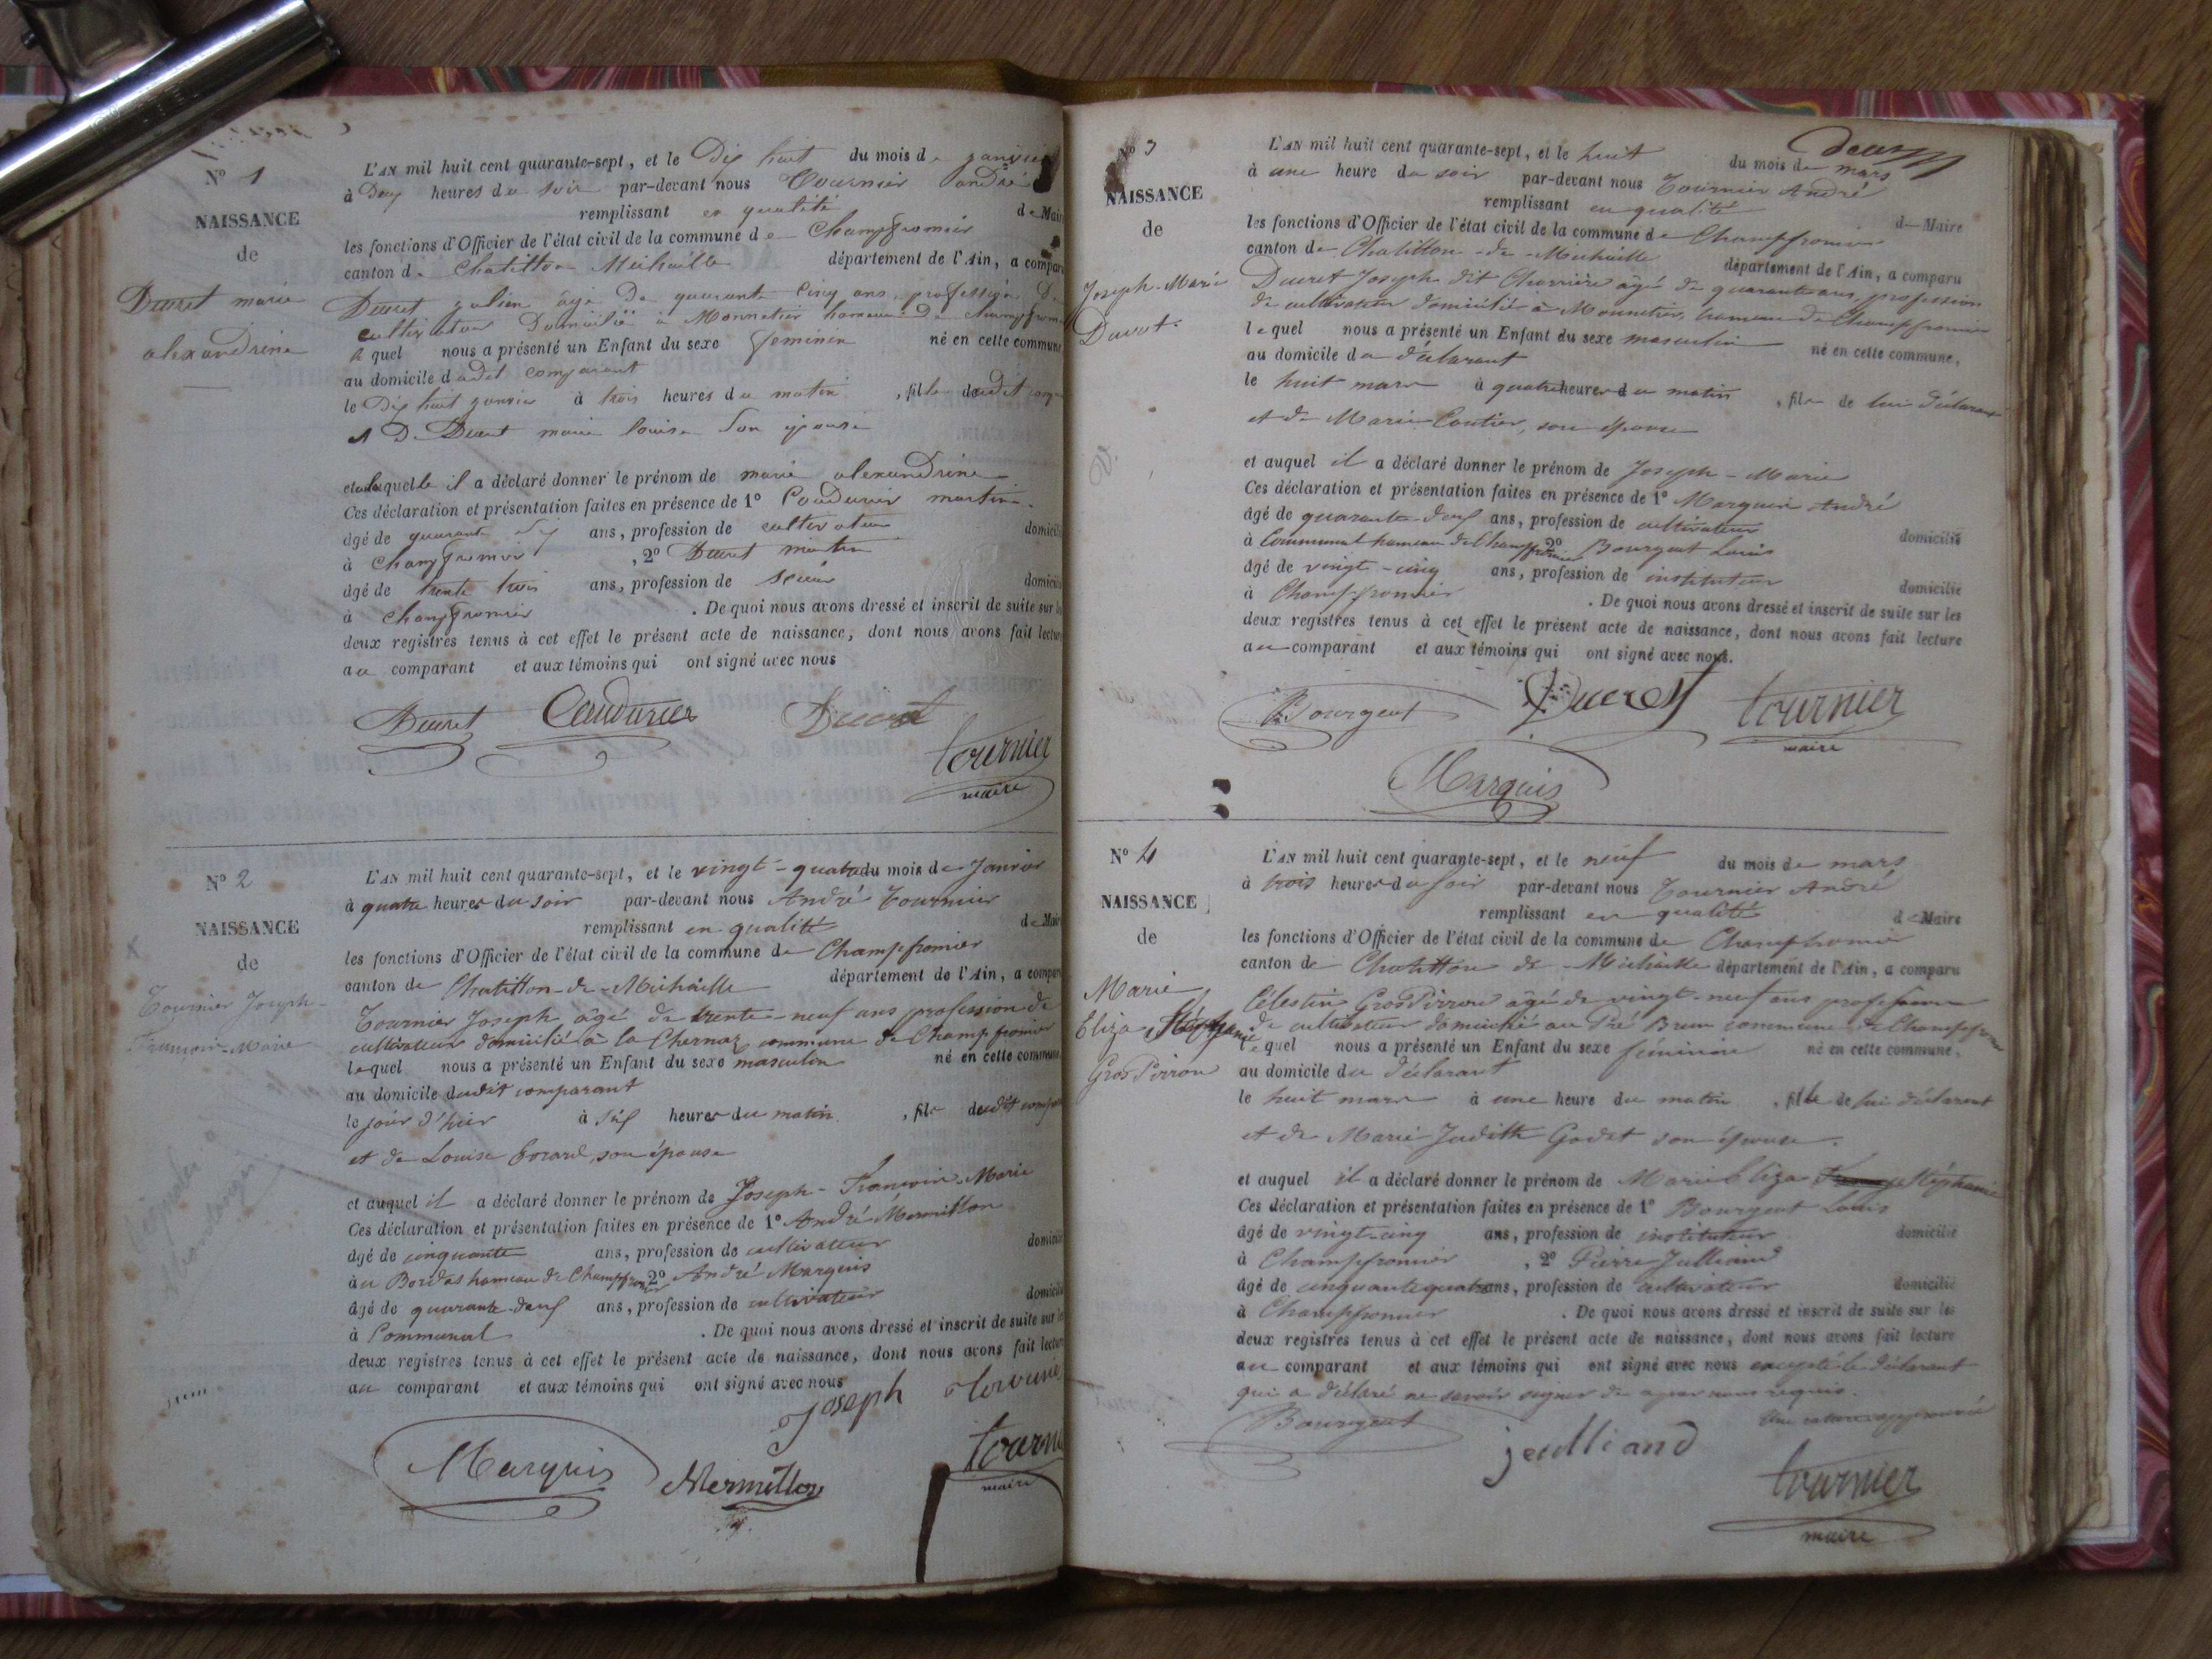 N° 1
NAISSANCE
de
Ducret marie
alexandrine
L'AN mil huit cent quarante-sept, et le Dix huit du mois de janvier
à Deux heures du soir par-devant nous Tournier andré
remplissant en qualité de Maire
les fonctions d'Officier de l'état civil de la commune de Champfromier
canton de Chatillon Michaille département de l'Ain, a comparu
Ducret julien âgé De quarante cinq ans, profession De
cultivateur Domicilié à Monnetier hameau De champfromier
le quel nous a présenté un Enfant du sexe feminin né en cette commune
au domicile dudit comparant
le Dix huit janvier à trois heures du matin, fille dudit
et De Ducret marie louise son épouse
et a laquelle il a déclaré donner le prénom de marie alexandrine
Ces déclaration et présentation faites en présence de 1° Coudurier martin
âgé de quarante ans, profession de cultivateur domicilié
à champfromier, 2° Ducret martin
âgé de trente trois ans, profession de scieur domicilié
à champfromier. De quoi nous avons dressé et inscrit de suite sur les
deux registres tenus à cet effet le présent acte de naissance, dont nous avons fait lecture
au comparant et aux témoins qui ont signé avec nous
Ducret Coudurier Ducret
tournier
maire
N° 2
NAISSANCE
de
Tournier Joseph-
François-Marie
L'AN mil huit cent quarante-sept, et le vingt-quatre du mois de Janvier
à quatre heures du soir par-devant nous André Tournier
remplissant en qualité de Maire
les fonctions d'Officier de l'état civil de la commune de Champfromier
canton de Chatillon-de-Michaille département de l'Ain, a comparu
Tournier Joseph âgé de trente-neuf ans profession de
cultivateur domicilié à la Chernaz commune de Champfromier
lequel nous a présenté un Enfant du sexe masculin né en cette commune
au domicile dudit comparant
le jour d'hier à six heures du matin, fils dudit comparant
et de Louise borard, son épouse
et auquel il a déclaré donner le prénom de Joseph-François-Marie
Ces déclaration et présentation faites en présence de 1° André Mermillon
âgé de cinquante ans, profession de cultivateur domicilié
à au Bordas hameau de Champfromier 2° André Marquis
âgé de quarante-deux ans, profession de cultivateur domicilié
à Communal. De quoi nous avons dressé et inscrit de suite sur les
deux registres tenus à cet effet le présent acte de naissance, dont nous avons fait lecture
au comparant et aux témoins qui ont signé avec nous
Joseph
Marquis Mermillon tournier
maire
deux
N° 3
NAISSANCE
de
Joseph-Marie
Ducret
L'AN mil huit cent quarante-sept, et le huit du mois de mars
à une heure du soir par-devant nous Tournier André
remplissant en qualité de Maire
les fonctions d'Officier de l'état civil de la commune de Champfromier
canton de Chatillon-de-Michaille département de l'Ain, a comparu
Ducret Joseph dit Charrière âgé de quarante ans, profession
de cultivateur domicilié à Monnetier, hameau de Champfromier
lequel nous a présenté un Enfant du sexe masculin né en cette commune,
au domicile du déclarant
le huit mars à quatre heures du matin, fils de lui déclarant
et de Marie Coutier, son épouse
et auquel il a déclaré donner le prénom de Joseph-Marie
Ces déclaration et présentation faites en présence de 1° Marquis André
âgé de quarante-deux ans, profession de cultivateur domicilié
à Communal hameau de Champfromier 2° Bourgeat Louis
âgé de vingt-cinq ans, profession de instituteur domicilié
à Champfromier. De quoi nous avons dressé et inscrit de suite sur les
deux registres tenus à cet effet le présent acte de naissance, dont nous avons fait lecture
au comparant et aux témoins qui ont signé avec nous.
Bourgeat Ducret tournier
maire
Marquis
N° 4
NAISSANCE
de
Marie
Eliza Stéphanie
GrosPirron
L'AN mil huit cent quarante-sept, et le neuf du mois de mars
à trois heures du soir par-devant nous Tournier André
remplissant en qualité de Maire
les fonctions d'Officier de l'état civil de la commune de Champfromier
canton de Chatillon de Michaille département de l'Ain, a comparu
Célestin GrosPirron âgé de vingt-neuf ans profession
de cultivateur domicilié au Pré Brun commune de Champfromier
lequel nous a présenté un Enfant du sexe féminin né en cette commune,
au domicile du déclarant
le huit mars à une heure du matin, fille de lui déclarant
et de Marie Judith Godet son épouse.
et auquel il a déclaré donner le prénom de Marie Eliza Stéphanie
Ces déclaration et présentation faites en présence de 1° Bourgeat Louis
âgé de vingt-cinq ans, profession de instituteur domicilié
à Champfromier, 2° Pierre Julliand
âgé de cinquante quatre ans, profession de cultivateur domicilié
à Champfromier. De quoi nous avons dressé et inscrit de suite sur les
deux registres tenus à cet effet le présent acte de naissance, dont nous avons fait lecture
au comparant et aux témoins qui ont signé avec nous excepté le déclarant
qui a déclaré ne savoir signer de ce par nous requis.
Une rature approuvée
Bourgeat julliand
tournier
maire